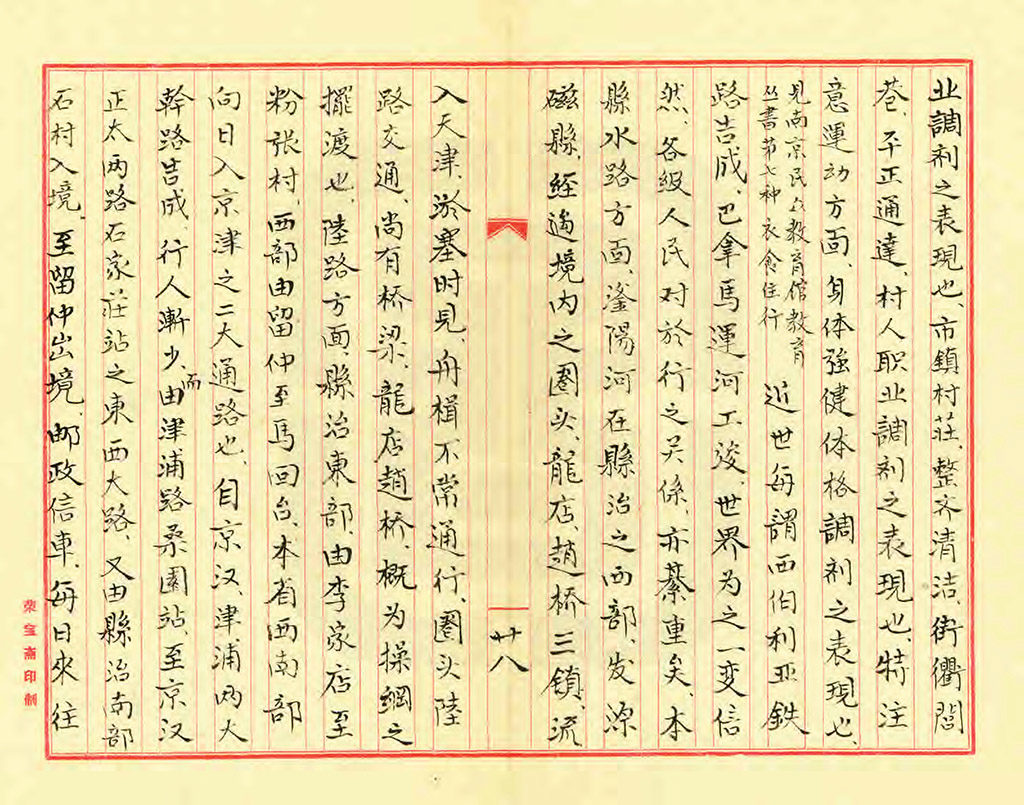 业調剂之表現也、市鎮村莊、整齐清洁、街衢閭
巷、平正通達、村人职业調剂之表現也、特注
意運动方面、身体強健体格調剂之表現也、
見南京民众教育馆教育
丛書第七种衣食住行
近世每謂西伯利亚鉄
路吿成、巴拿馬運河工浚、世界为之一变、信
然、各级人民对於行之关係、亦綦重矣、本
縣水路方面、滏陽河在縣治之西部、发源
磁縣、経過境内之圈头、龍店、趙桥三鎮、流
入天津、淤塞时見、舟楫不常通行、圈头陸
路交通、尚有桥梁、龍店趙桥、概为操綱之
擺渡也、陸路方面、縣治東部、由李家店至
粉张村、西部由留仲至馬回台、本省西南部
向日入京津之二大通路也、自京汉、津浦两大
幹路吿成、行人漸少、而由津浦路桑園站、至京汉
正太两路石家莊站之東西大路、又由縣治南部
石村入境、至留仲出境、邮政信車、每日來往
廿八
荣宝斋印制